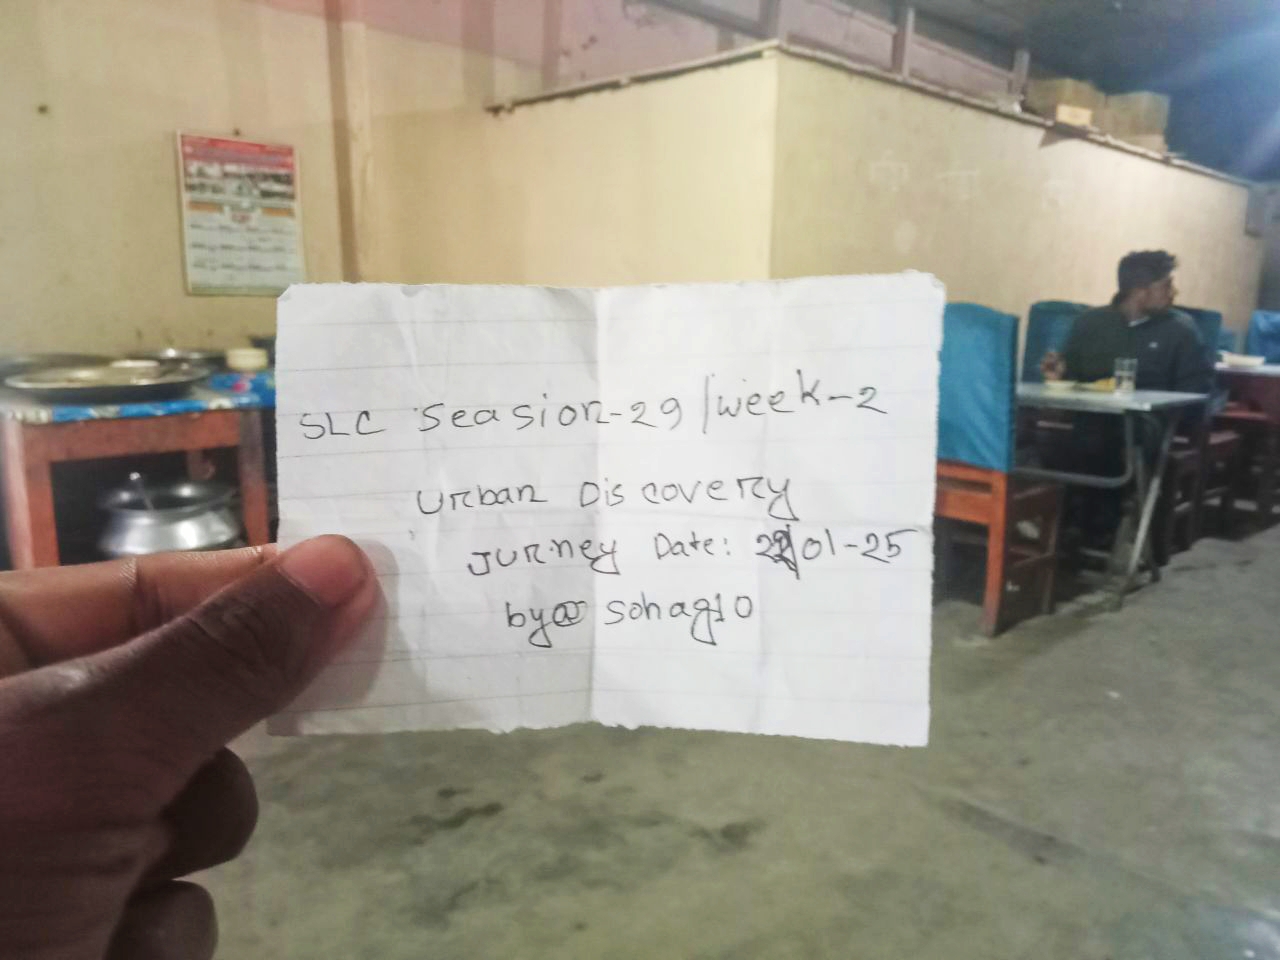 SLC Seasion-29/week-2
Urban Discovery
Jurney Date: 22/01-25
by@sohag10